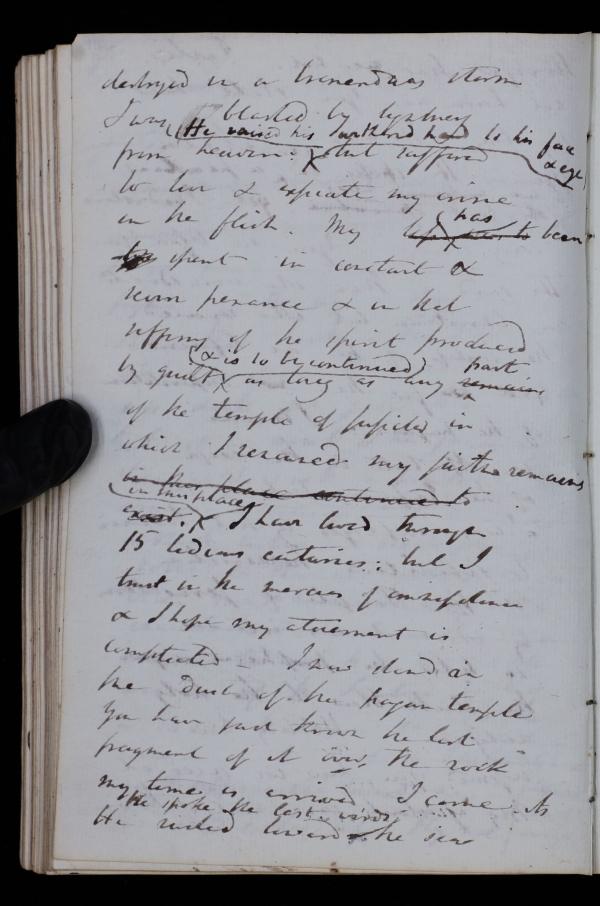 destroyed in a tremendous storm
I was blasted by lightning
He raised his withered hand to his face
& eye
from heaven. X but suffered
to live & expiate my crime
in the flesh. My has been
spent in constant &
severe penance & in that
suffering of the spirit produced
& is to be continued part
by guilt X as long as any remains
of the temple of Jupiter in
which I renounced my faith remains
in this place continues to
in this place
exist. X I have lived through
15 tedious centuries: but I
trust in the mercies of omnipotence
& I hope my atonement is
completed - I now stand in
the dust of the pagan temple
You have just thrown the last
fragment of it over the rock
my time is arrived I come As
He spoke the last words
He rushed towards the sea